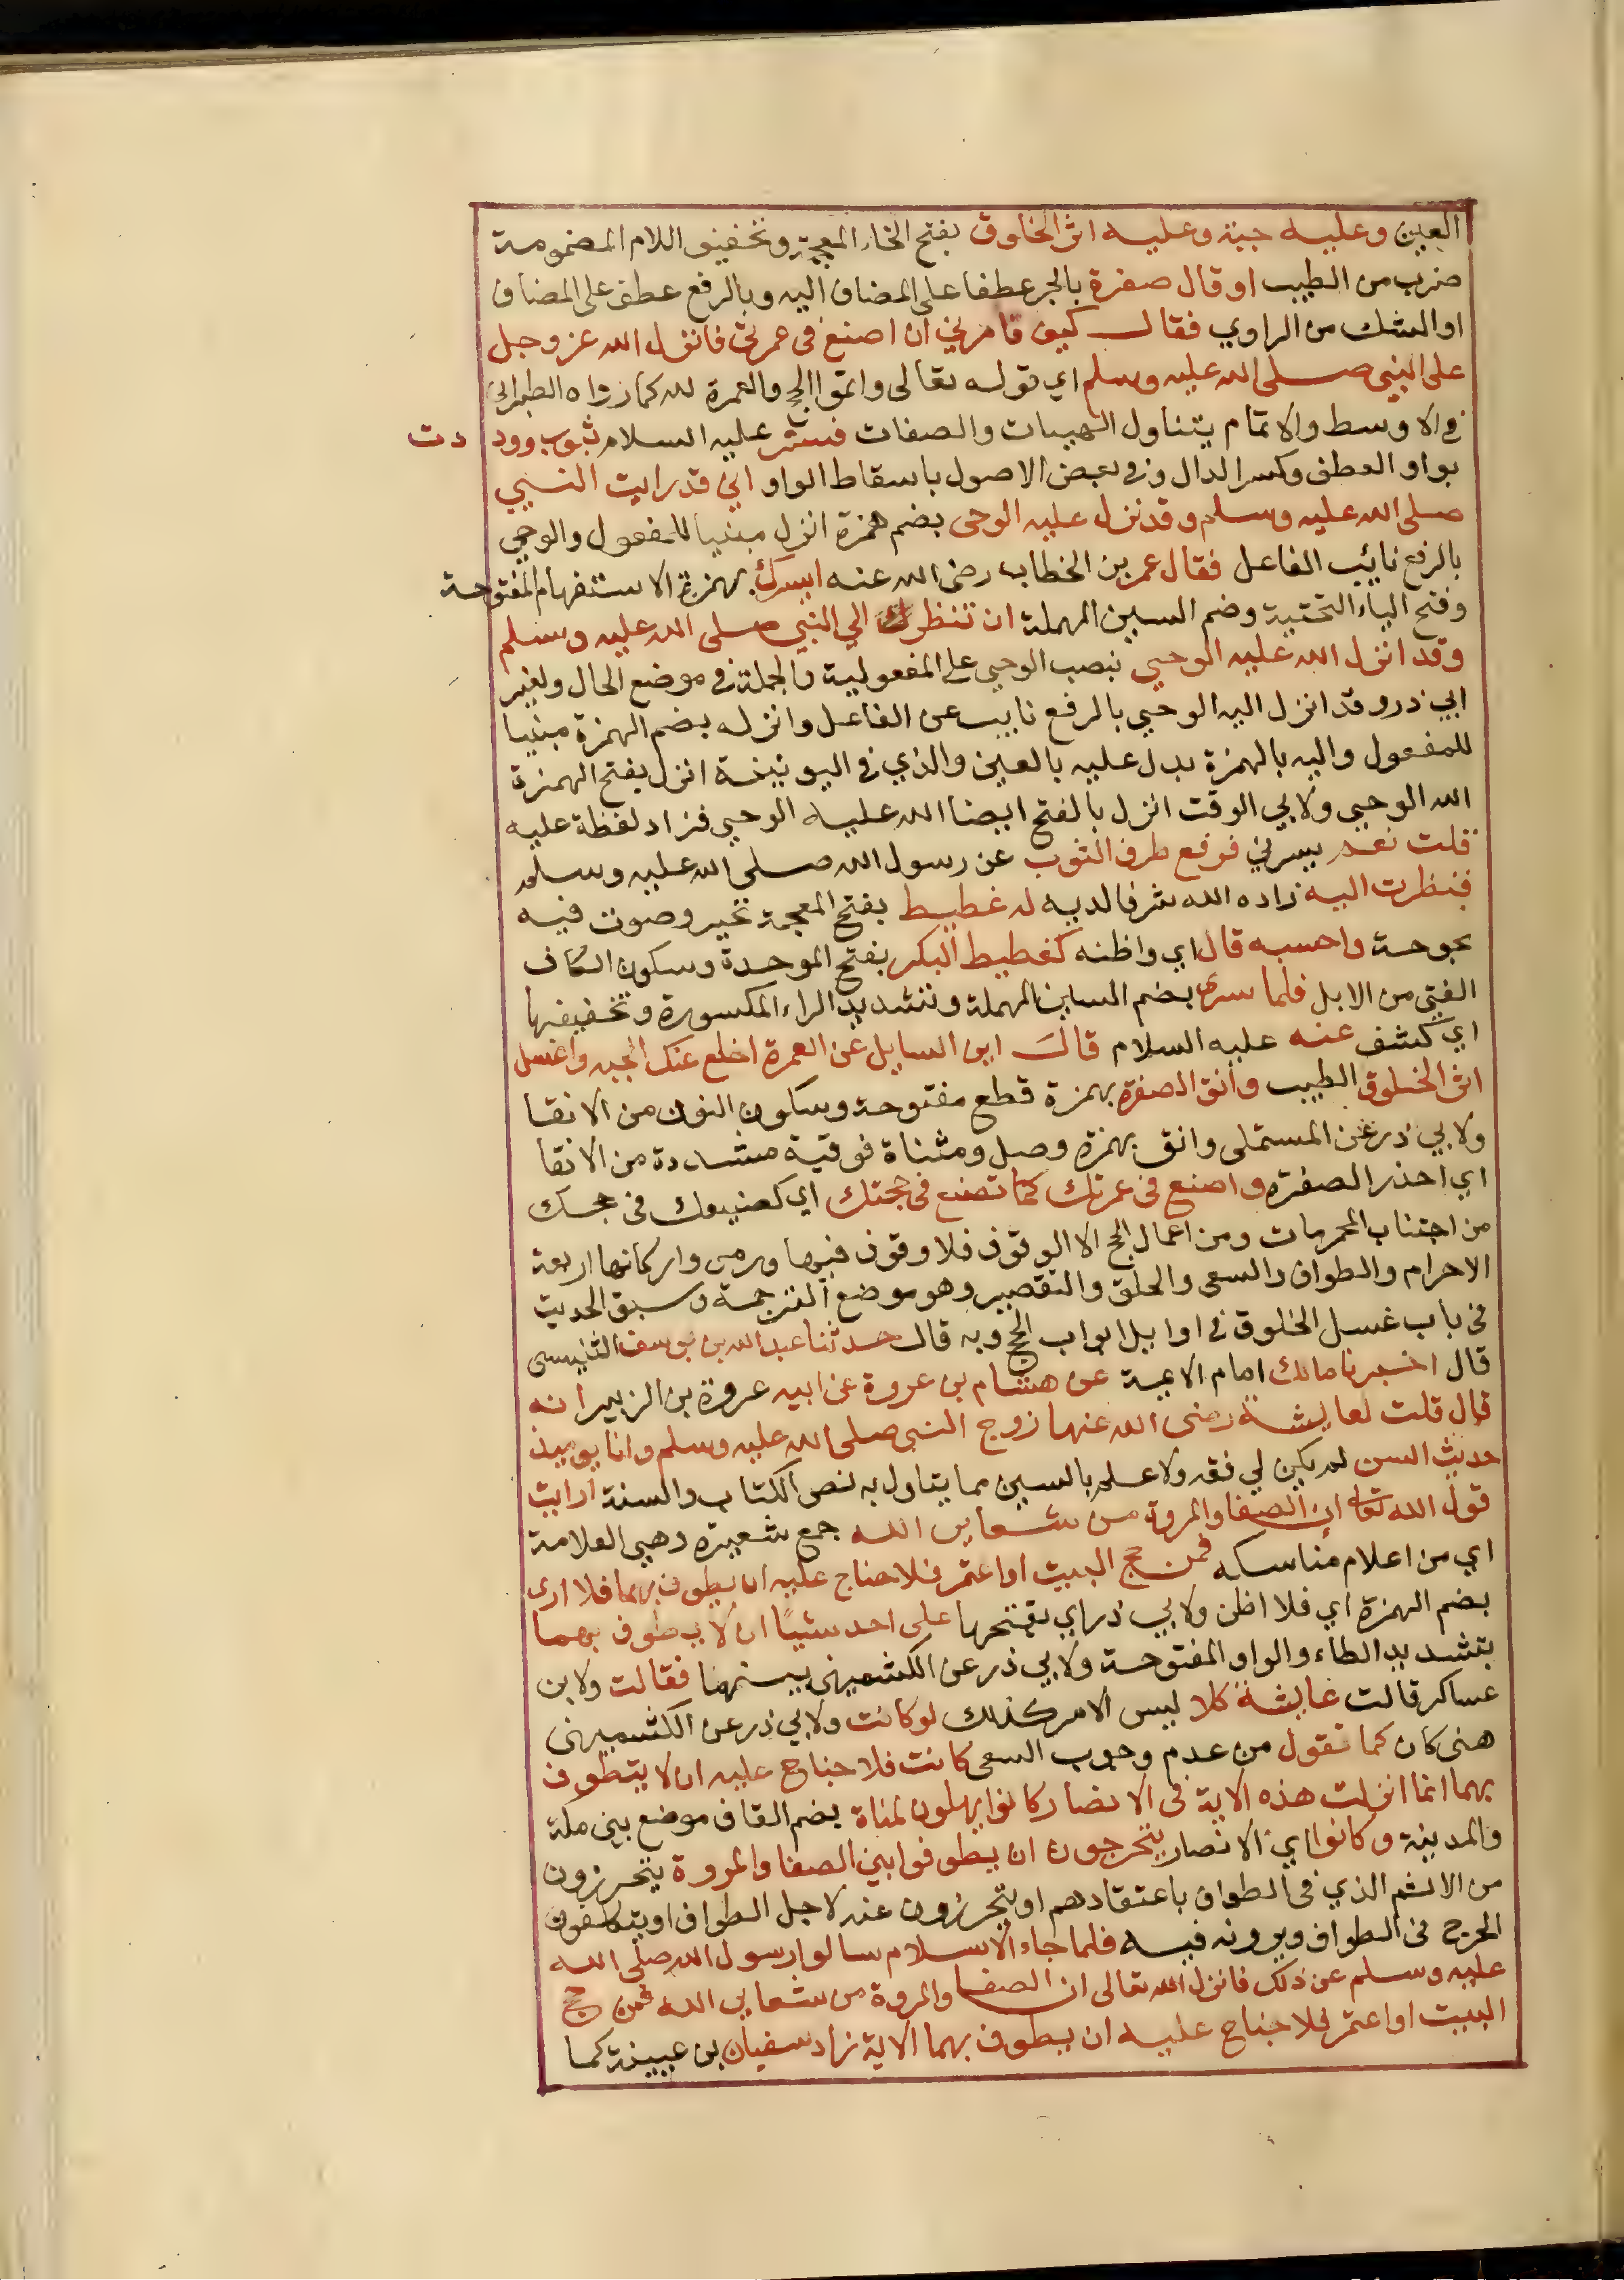 العين وعليه جبة وعليه اثر الخلوق بفتح الخاء المعجمة وتخفيف اللام المضمومة
ضرب من الطيب او قال صفرة بالجر عطفا على المضاف اليه وبالرفع عطف على المضاف
او الشك من الراوي فقال كيف تامرني ان اصنع في عمرتي فانزل الله عز وجل
على النبي صلى الله عليه وسلم اي قوله تعالى واتموا الحج والعمرة لله كما رواه الطبراني
في الاوسط والاتمام يتناول الهيبات والصفات فستر عليه السلام بثوب وود دت
بواو العطف وكسر الدال وفي بعض الاصول باسقاط الواو اني قد رايت النبي
صلى الله عليه وسلم وقد نزل عليه الوحى بضم همزة انزل مبنيا للمفعول والوحي
بالرفع نائيب الفاعل فقال عمر بن الخطاب رضى الله عنه ايسرك بهمزة الاستفهام المفتوحة
وفتح الياء التحتية وضم السين المهملة ان تنظر الي النبي صلى الله عليه وسلم
وقد انزل الله عليه الوحي بنصب الوحي على المفعولية والجملة في موضع الحال ولغير
ابي ذر وقد انزل اليه الوحي بالرفع نايب عن الفاعل وانزله بضم الهمزة مبنيا
للمفعول واليه بالهمزة بدل عليه بالعين والذي في اليونينة انزل بفتح الهمزة
الله الوحي ولابي الوقت انزل بالفتح ايضا الله عليه الوحي فزاد لفظة عليه
قلت نعم يسرني فرفع طرف الثوب عن رسول الله صلى الله عليه وسلم
فنظرت اليه زاده الله شرفا لديه له غطيط بفتح المعجمة نخير وصوت فيه
بحوحة واحسبه قال اي واظنه كغطيط البكر بفتح الموحدة وسكون الكاف
الفتي من الابل فلما سرى بضم السين المهملة وتشديد الراء المكسورة وتخفيفها
اي كشف عنه عليه السلام قال اين السايل عن العمرة اخلع عنك الجبه واغسل
اثر الخلوق الطيب وانق الصفرة بهمزة قطع مفتوحة وسكون النون من الانقا
ولابي ذر عن المستملى واتق بهمزة وصل ومثناة فوقية مشددة من الاتقا
اي احذر الصفرة واصنع في عمرتك كما تصنع في حجتك اي كصنيعك في حجك
من اجتناب المحرمات ومن اعمال الحج الا الوقوف فلا وقوف فيها ورمى واركانها اربعة
الاحرام والطواف والسعى والحلق والتقصير وهو موضع الترجمة وسبق الحديث
في باب غسل الخلوق في اوايل ابواب الحج وبه قال حدثنا عبد الله بن يوسف التنيسى
قال اخبرنا مالك امام الايمة عن هشام بن عروة عن ابيه عروة بن الزبير انه
قال قلت لعايشة رضى الله عنها زوج النبي صلى الله عليه وسلم وانا يوميذ
حديث السن لم يكن لي فقه ولا علم بالسين مما يتاول به نص الكتاب والسنة ارايت
قول الله تعالى ان الصفا والمروة من شعاير الله جمع شعيرة وهي العلامة
اي من اعلام مناسكه فمن حج البيت او اعتمر فلا جناح عليه ان يطوف بهما فلا ارى
بضم الهمزة اي فلا اظن ولابي ذر اي بفتحها على احد شيئا ان لا يطوف بهما
بتشديد الطاء والواو المفتوحة ولابي ذر عن الكشميهنى بينهما فقالت ولابن
عساكر قالت عايشة كلا ليس الامر كذلك لو كانت ولابي ذر عن الكشميهنى
هنى كان كما تقول من عدم وجوب السعى كانت فلا جناح عليه ان لا يتطوف
بهما انما انزلت هذه الاية في الانصار كانوا يهلون لمناة بضم القاف موضع بين مكة
والمدينة وكانوا اي الانصار يتحرجون ان يطوفوا بين الصفا والمروة يتحرزون
من الاثم الذي في الطواف باعتقادهم او يتحرزون عنه لاجل الطواف او يتكلفون
الحرج في الطواف ويرونه فيه فلما جاء الاسلام سالوا رسول الله صلى الله
عليه وسلم عن ذلك فانزل الله تعالى ان الصفا والمروة من شعاير الله فمن حج
البيت او اعتمر فلا جناح عليه ان يطوف بهما الاية زاد سفيان بن عيينة كما